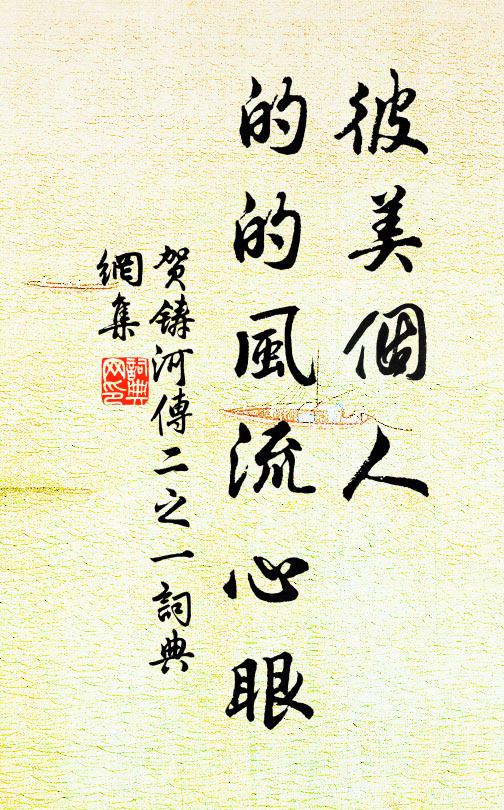 彼美個人
的的風流心眼
贺鑄河傳二之一詞典
網集
詞典
网印